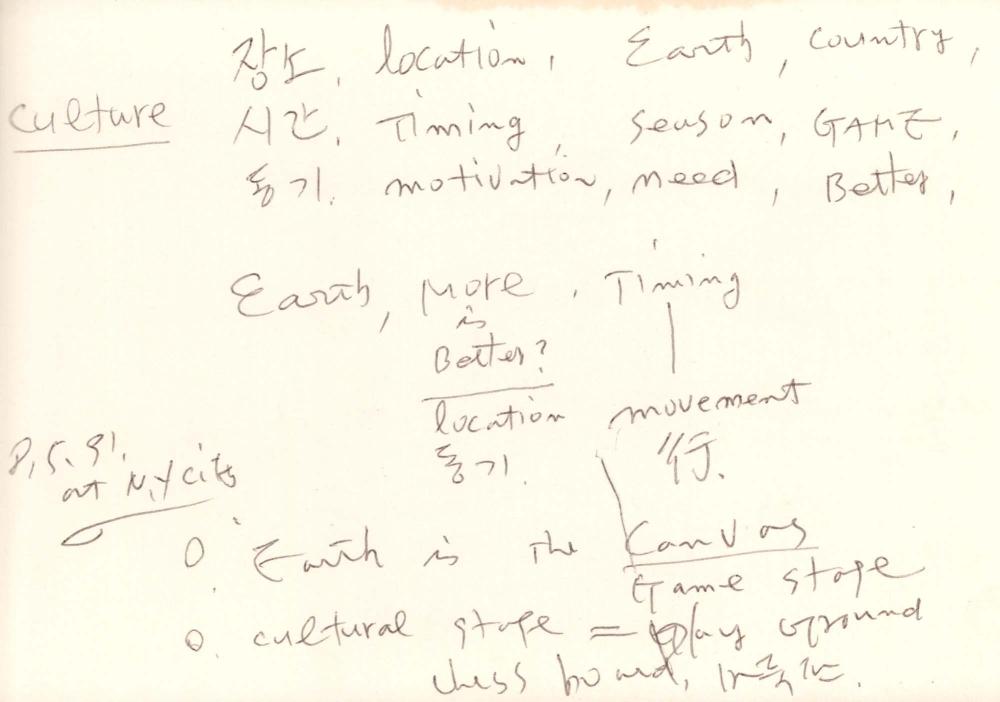 장소, location, Earth, country,
culture 시간, Timing, season, GAME,
동기. motivation, need, Better,
Earth, More, Timing
is
Better?
location movement
동기. 行.
8, 5, 91, at N.Y City
0. Earth is the Canvas
Game stage
0. cultural stage = play ground
chess board, 바둑판.